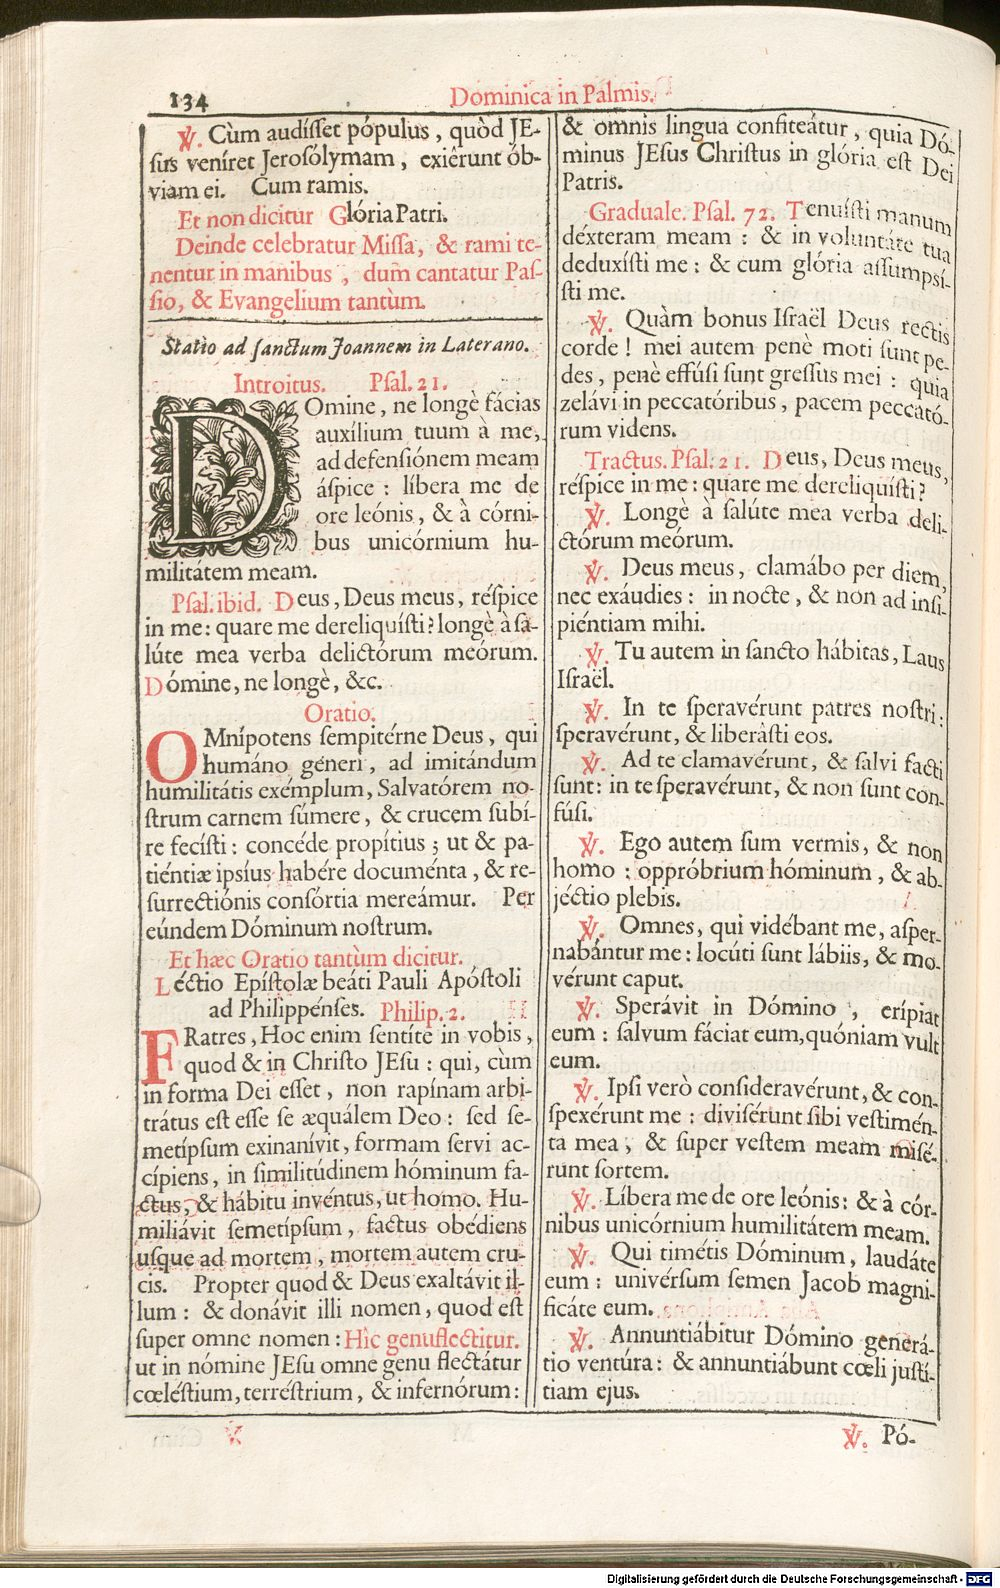 134
Dominica in Palmis.
℣. Cùm audíſſet pópulus, quòd JE-
ſus veníret Jeroſólymam, exiêrunt ób-
viam ei. Cum ramis.
Et non dicitur Glória Patri.
Deinde celebratur Miſſa, & rami te-
nentur in manibus, dum cantatur Paſ-
ſio, & Evangelium tantùm.
Statio ad ſanctum Joannem in Laterano.
Introitus. Pſal. 21.
DOmine, ne longè fácias
auxílium tuum à me,
ad defenſiónem meam
áſpice: líbera me de
ore leónis, & à córni-
bus unicórnium hu-
militátem meam.
Pſal. ibid. Deus, Deus meus, réſpice
in me: quare me dereliquíſti? longè à ſa-
lúte mea verba delictórum meórum.
Dómine, ne longè, &c.
Oratio.
OMnípotens ſempitérne Deus, qui
humáno géneri, ad imitándum
humilitátis exémplum, Salvatórem no-
ſtrum carnem ſúmere, & crucem ſubí-
re feciſti: concéde propítius; ut & pa-
tiéntiæ ipsíus habére documénta, & re-
ſurrectiónis conſórtia mereámur. Per
eúndem Dóminum noſtrum.
Et hæc Oratio tantùm dicitur.
Léctio Epíſtolæ beáti Pauli Apóſtoli
ad Philippénſes. Philip. 2.
FRatres, Hoc enim ſentíte in vobis,
quod & in Chriſto JEſu: qui, cùm
in forma Dei eſſet, non rapínam arbi-
trátus eſt eſſe ſe æquálem Deo: ſed ſe-
metípſum exinanívit, formam ſervi ac-
cípiens, in ſimilitúdinem hóminum fa-
ctus, & hábitu invéntus, ut homo. Hu-
miliávit ſemetípſum, factus obédiens
uſque ad mortem, mortem autem cru-
cis. Propter quod & Deus exaltávit il-
lum: & donávit illi nomen, quod eſt
ſuper omne nomen: Hìc genuflectitur.
ut in nómine JEſu omne genu flectátur
cœléſtium, terréſtrium, & infernórum:
& omnis lingua confiteátur, quia Dó-
minus JEſus Chriſtus in glória eſt Dei
Patris.
Graduale. Pſal. 72. Tenuíſti manum
déxteram meam: & in voluntáte tua
deduxíſti me: & cum glória aſſumpsí-
ſti me.
℣. Quàm bonus Iſraël Deus rectis
corde! mei autem penè moti ſunt pe-
des, penè effúſi ſunt greſſus mei: quia
zelávi in peccatóribus, pacem peccató-
rum videns.
Tractus. Pſal. 21. Deus, Deus meus,
réſpice in me: quare me dereliquíſti?
℣. Longè à ſalúte mea verba deli-
ctórum meórum.
℣. Deus meus, clamábo per diem,
nec exáudies: in nocte, & non ad inſi-
piéntiam mihi.
℣. Tu autem in ſancto hábitas, Laus
Iſraël.
℣. In te ſperavérunt patres noſtri:
ſperavérunt, & liberàſti eos.
℣. Ad te clamavérunt, & ſalvi facti
ſunt: in te ſperavérunt, & non ſunt con-
fúſi.
℣. Ego autem ſum vermis, & non
homo: oppróbrium hóminum, & ab-
jéctio plebis.
℣. Omnes, qui vidébant me, aſper-
nabántur me: locúti ſunt lábiis, & mo-
vérunt caput.
℣. Sperávit in Dómino, erípiat
eum: ſalvum fáciat eum, quóniam vult
eum.
℣. Ipſi verò conſideravérunt, & con-
ſpexérunt me: diviſérunt ſibi veſtimén-
ta mea, & ſuper veſtem meam miſé-
runt ſortem.
℣. Líbera me de ore leónis: & à cór-
nibus unicórnium humilitátem meam.
℣. Qui timétis Dóminum, laudáte
eum: univérſum ſemen Jacob magni-
ficáte eum.
℣. Annuntiábitur Dómino generá-
tio ventúra: & annuntiábunt cœli juſtí-
tiam ejus.
℣. Pó-
Digitalisierung gefördert durch die Deutsche Forschungsgemeinschaft - DFG